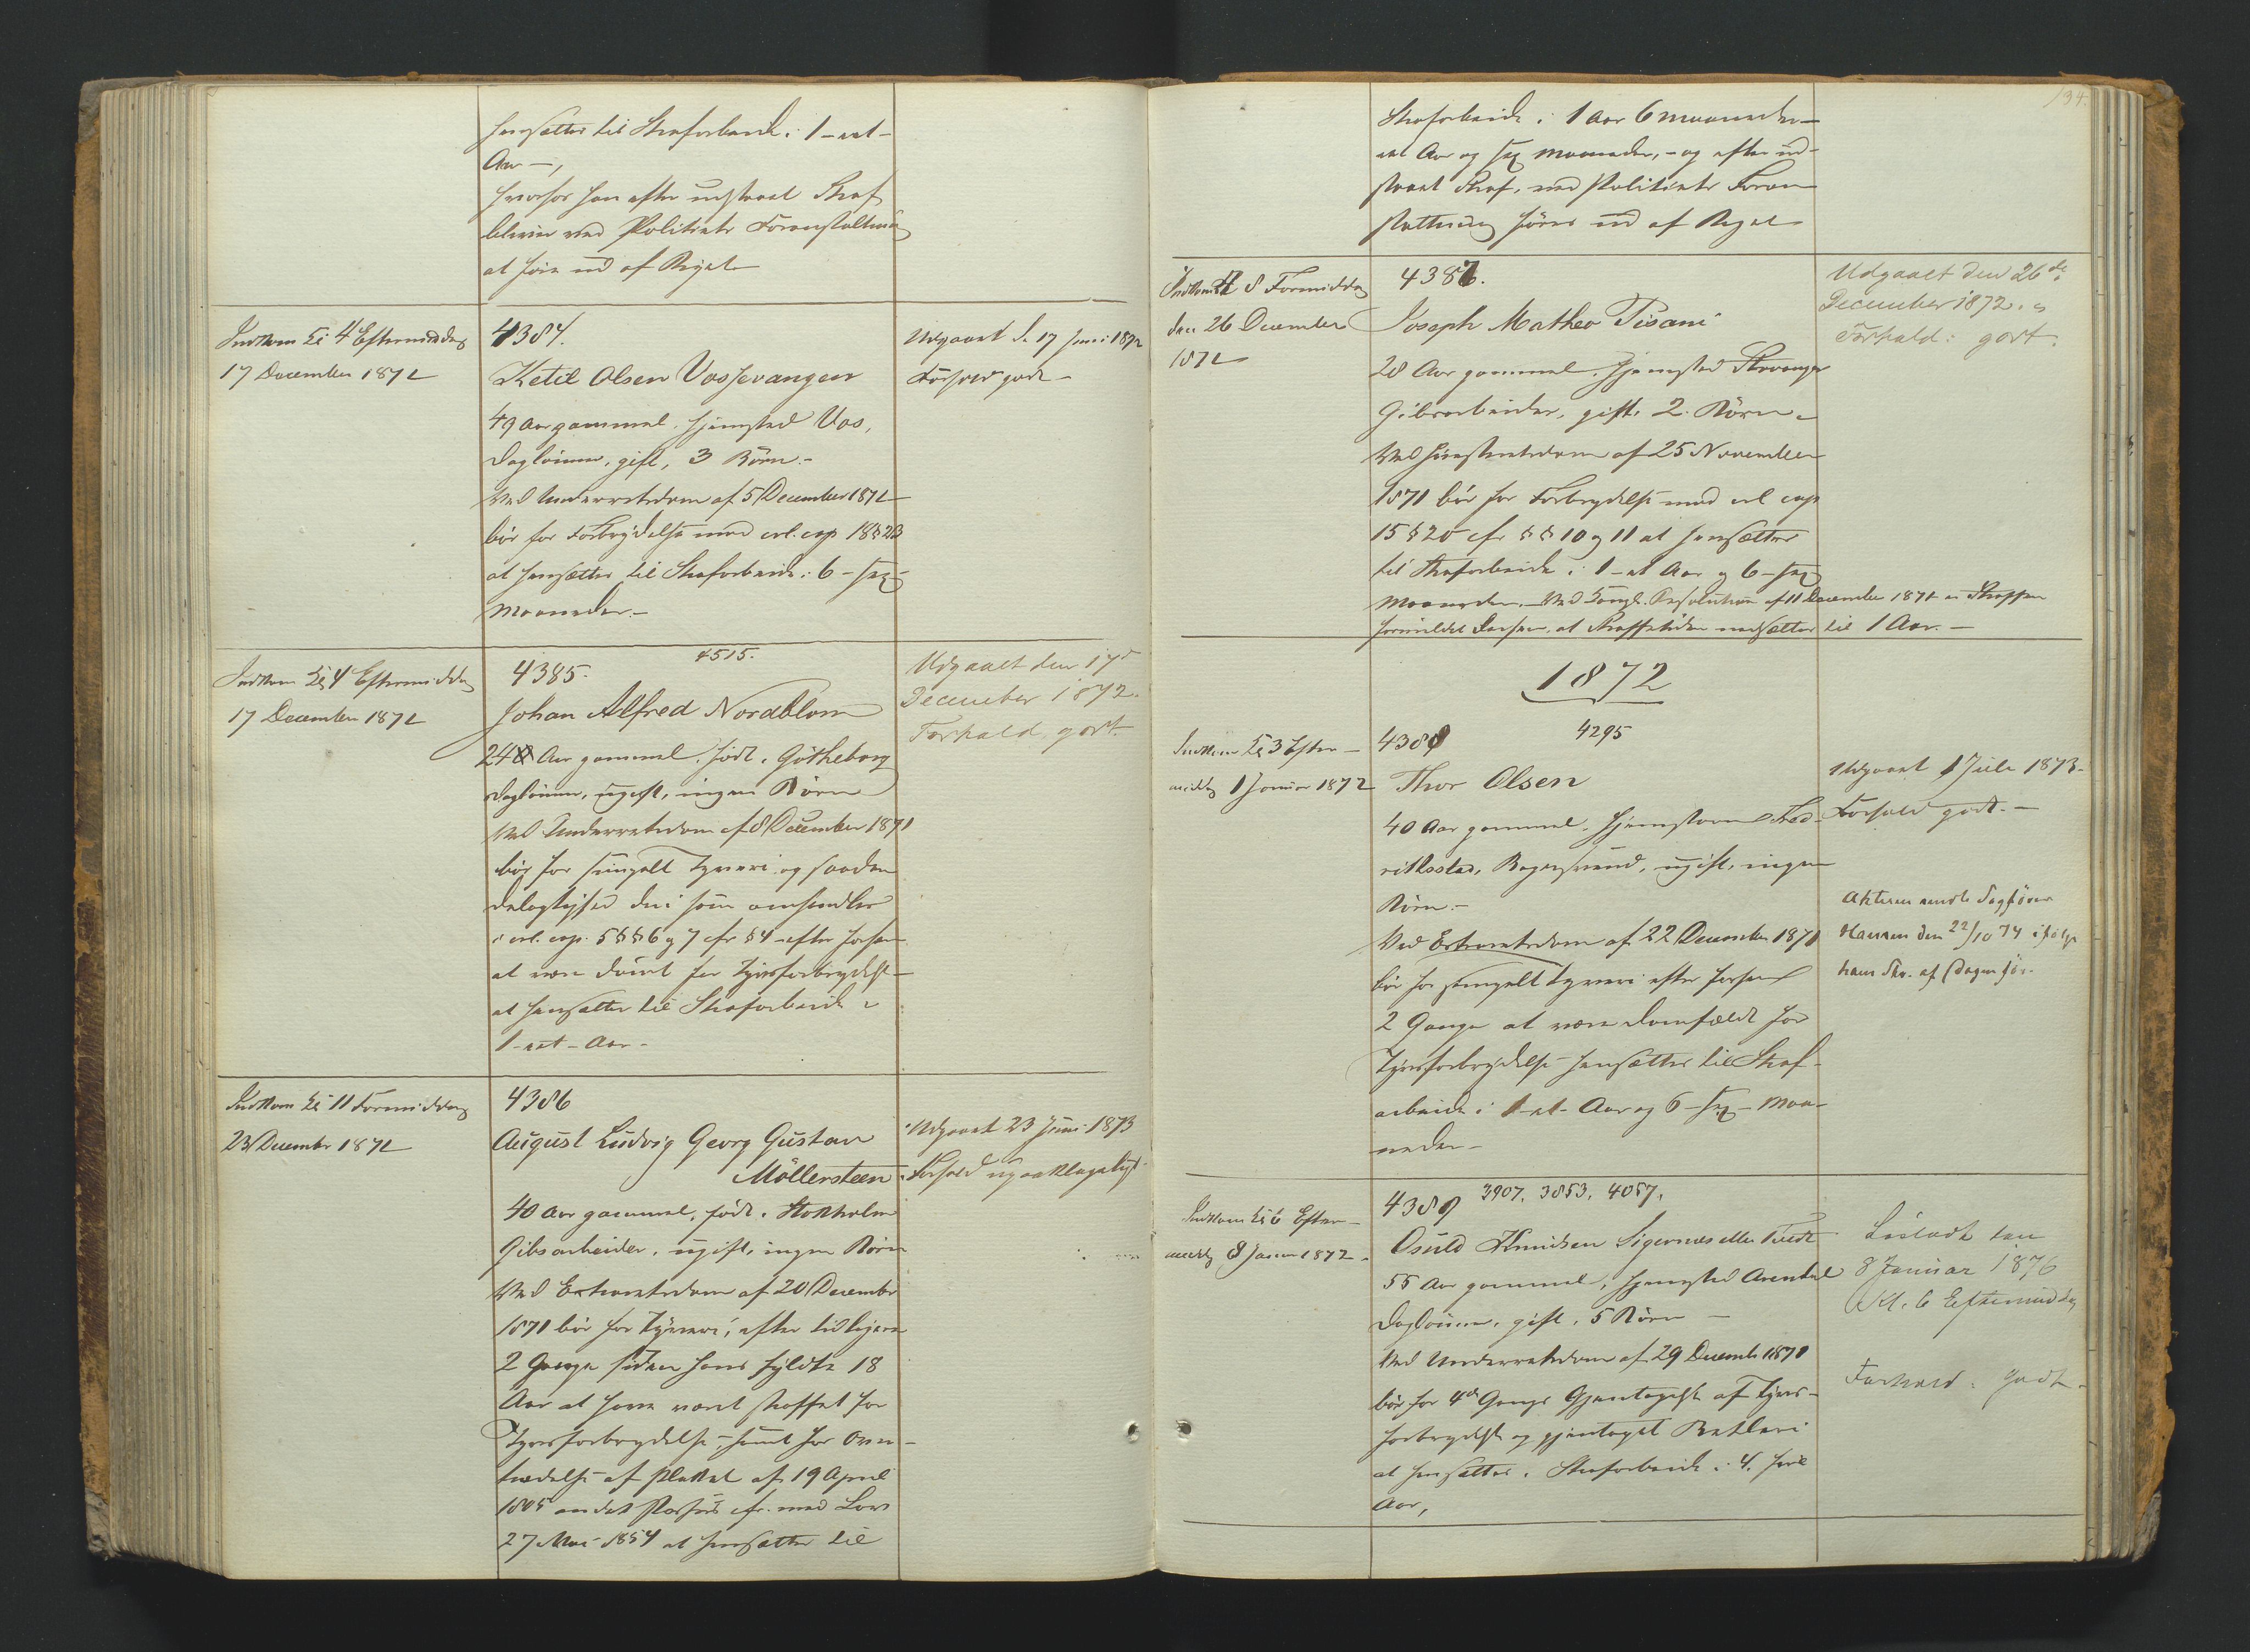 hensættes til Strafarbeide i 1 – eet –
Aar –,
hvorfor han efter udstaaet Straf
bliver ved Politiets Foranstaltning
at føre ud af Riget
Indkom Kl 4 Eftermiddag
17 December 1871
4384.
Ketil Olsen Vossevangen
49 Aar gammel. Hjemsted Vos,
Dagløinner, gift, 3 Börn.–
Ved Underretsdom af 5 December 1871
bør for Forbrydelse mod crl. cap 18 § 23
at hensættes til Strafarbeide i 6 – sex –
Maaneder.–
Udgaaet d. 17 Juni 1872
Forhold godt –
Indkom Kl 4 Eftermiddag
17 December 1871
4385. 4515.
Johan Alfred Nordblom
24 Aar gammel. født. Götheborg
Dagløinner, ugift, ingen Börn
Ved Underretsdom af 8 December 1871
bør for simpelt Tyveri og saadan
Delagtighed deri som omhandles
i crl. cap. 5 §§ 6 og 7 cfr § 4 – efter forhen
at være dömt for Tyvsforbrydelse –
at hensættes til Strafarbeide i
1 – eet – Aar –
Udgaaet den 17de
December 1872.
Forhold godt.
Indkom Kl 11 Formiddag
23 December 1871
4386
August Ludvig Georg Gustav
Möllersteen
40 Aar gammel. født. Stokholm
Gibsarbeider, ugift, ingen Börn
Ved Extraretsdom af 20 December
1871 bør for Tyveri, efter tidligere
2 Gange siden hans fyldte 18
Aar at have været straffet for
Tyvsforbrydelse, samt for Over–
trædelse af Plakat af 19 April
1805 andet Passus cfr. med Lov
27 Mai 1854 at hensættes til
Udgaaet 23 Juni 1873
Forhold upaaklageligt
134.
Strafarbeide i 1 Aar 6 Maaneder –
eet Aar og sex Maaneder, – og efter ud–
staaet Straf, ved Politiets Foran
staltning føres ud af Riget
Indkom Kl 8 Formiddag
den 26 December
1871
4387.
Joseph Matheo Pisani
28 Aar gammel. Hjemsted Stavanger
Gibsarbeider, gift. 2 Börn.
Ved Høiesteretsdom af 25 November
1871 bør for Forbrydelse mod crl cap
15 § 20 cfr §§ 10 og 11 at hensættes
til Strafarbeide i 1 – et Aar og 6 – sex
Maaneder. – Ved Kongl. Resolution af 11 December 1871 er Straffen
formildet derhen, at Straffetiden nedsættes til 1 Aar. –
Udgaaet den 26de
December 1872.
Forhold: godt.
1872
Indkom Kl 3 Efter–
middag 1 Januar 1872
4388 4295
Thor Olsen
40 Aar gammel. Hjemstavn Fred–
rikstad, Bagersvend, ugift, ingen
Börn.–
Ved Extraretsdom af 22 December 1871
bør for simpelt Tyveri efter forhen
2 Gange at være domfældt for
Tyvsforbrydelse hensættes til Straf–
arbeide i 1 – et – Aar og 6 – sex – Maa–
neder –
Udgaaet 1 Juli 1873.
Forhold godt.–
Akterne sendt Sagfører
Hansen den 22/10 74 ifølge
hans Skr. af Dagen før.
Indkom Kl 6 Efter–
middag 8 Januar 1872.
4389 3907. 3853. 4057.
Osuld Knudsen Sigernæs eller Tvedt
55 Aar gammel, Hjemsted Arendal
Dagløinner, gift, 5 Börn –
Ved Underretsdom af 29 December 1871
bør for 4de Gangs Gjentagelse af Tyvs–
forbrydelse og gjentaget Betleri
at hensættes i Strafarbeide i 4. fire
Aar,
Løsladt den
8 Januar 1876
Kl. 6 Eftermiddag
Forhold: Godt.